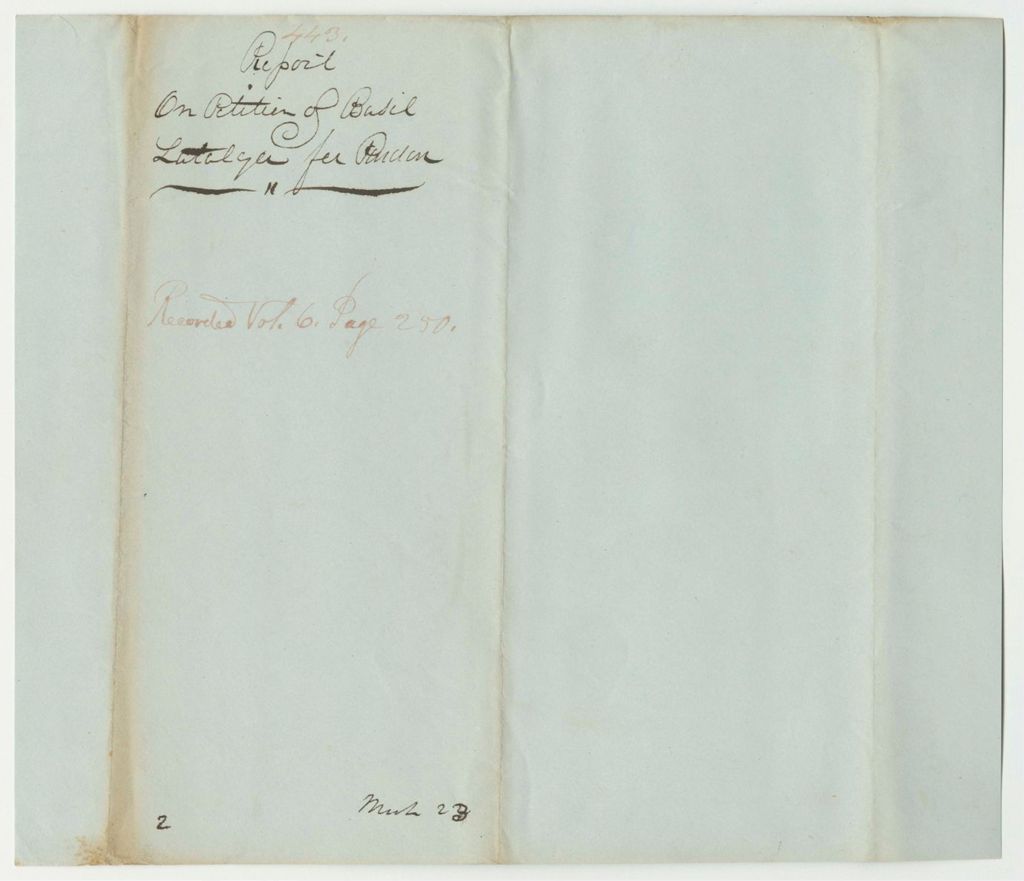 443.
Report
On Petition of Basil
Latalyer for Pardon
Recorded Vol. 6. Page 250.
2 March 23